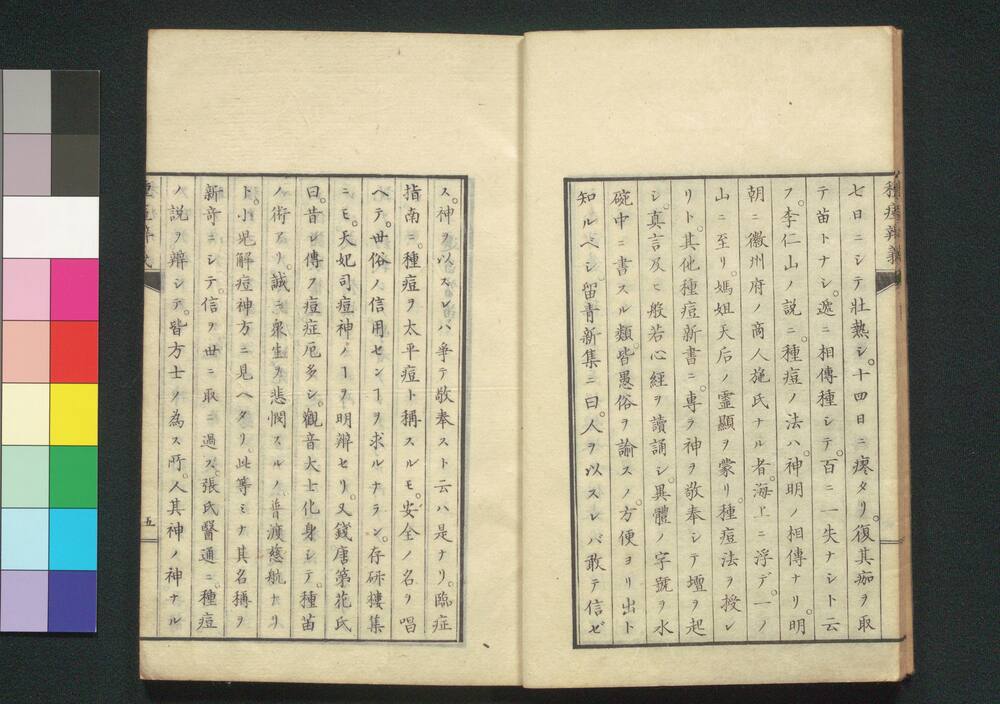 種痘辨義
七日ニシテ壯熱シ。十四日ニ瘳タリ。復其痂ヲ取
テ苗トナシ。遞ニ相傳種シテ。百ニ一失ナシト云
フ。李仁山ノ說ニ。種痘ノ法ハ。神明ノ相傳ナリ。明
朝ニ徽州府ノ商人施氏ナル者。海上ニ浮デ。一ノ
山ニ至リ。媽姐天后ノ靈顯ヲ蒙リ。種痘法ヲ授レ
リト。其他種痘新書ニ。專ラ神ヲ敬奉シテ壇ヲ起
シ。真言及ヒ般若心經ヲ讀誦シ。異體ノ字號ヲ水
碗中ニ書スル類。皆愚俗ヲ諭スノ。方便ヨリ出ト
知ルベシ。留青新集ニ曰。人ヲ以スレバ敢テ信ゼ
ス。神ヲ以スレバ爭テ敬奉スト云ハ是ナリ。臨症
指南ニ。種痘ヲ太平痘ト稱スルモ。安全ノ名ヲ唱
ヘテ。世俗ノ信用センヿヲ求ルナラン。存研樓集
ニモ。天妃司痘神ノヿヲ明辨セリ。又錢唐第花氏
曰。昔シ傳フ痘症厄多シ。觀音大士化身シテ。種苗
ノ術アリ。誠ニ衆生ヲ悲憫スルノ。普渡慈航ナリ
ト。小兒解痘神方ニ見ヘタリ。此等ミナ其名稱ヲ
新奇ニシテ。信ヲ世ニ取ニ過ス。張氏醫通ニ。種痘
ノ說ヲ辨シテ。皆方士ノ為ス所。人其神ノ神ナル
五